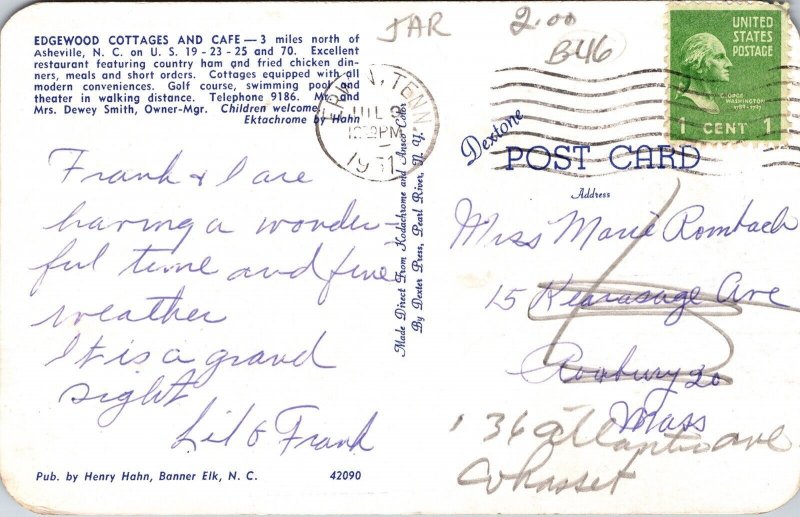 EDGEWOOD COTTAGES AND CAFE — 3 miles north of
Asheville, N. C. on U. S. 19 - 23 - 25 and 70. Excellent
restaurant featuring country ham and fried chicken din-
ners, meals and short orders. Cottages equipped with all
modern conveniences. Golf course, swimming pool and
theater in walking distance. Telephone 9186. Mr. and
Mrs. Dewey Smith, Owner-Mgr. Children welcome.
Ektachrome by Hahn
JAR
2.00
B46
TENN.
JUL 9
PM
1951
UNITED
STATES
POSTAGE
GEORGE
WASHINGTON
1789-1797
1 CENT 1
Dextone
POST CARD
Address
Frank & I are
having a wonder-
ful time and fine
weather
It is a grand
sight
Lil & Frank
Made Direct From Kodachrome and Ansco Color
By Dexter Press, Pearl River, N. Y.
Miss Marie Rombach
15 Kearsage Ave
Roxbury 20
Mass
36 atlantic ave
Cohasset
Pub. by Henry Hahn, Banner Elk, N. C.
42090